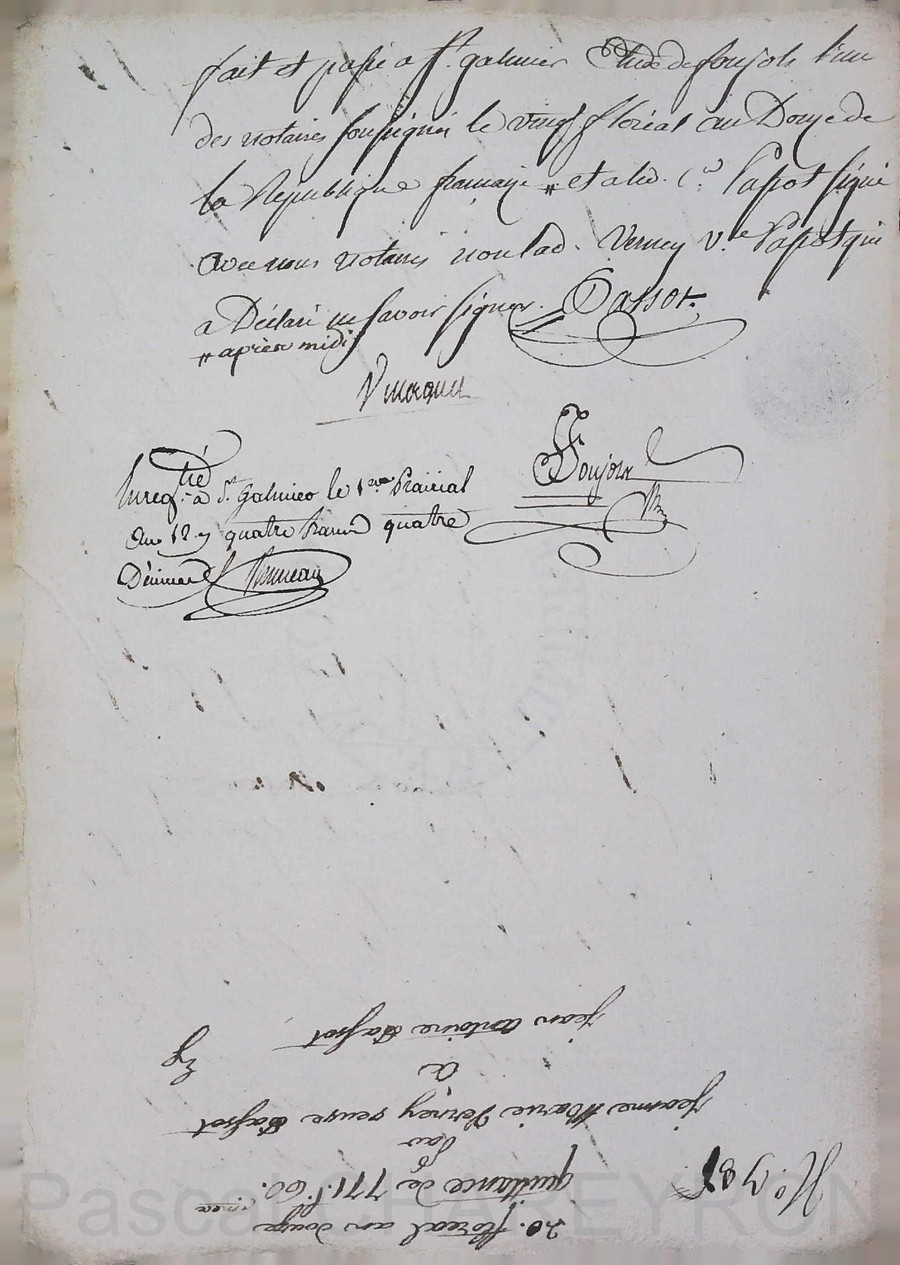 fait et passé a St. galmier Etude de foujols l'un
des notaires soussignés le vingt floréal an Douze de
la Republique francaise # et a led. Cn. Passot signé
avec nous notaires non lad. Verney Ve. Passot qui
a Déclaré ne savoir signer. Passot
# après midi
Enregtré à St. Galmier le 1er Prairial
an 12. quatre francs quatre
Décimes
N°. 
20. floréal an douze
quittance de 771.f 60.
par
jeanne Marie Verney veuve Passot
a
jean antoine Passot
Pascal CHAREYRON